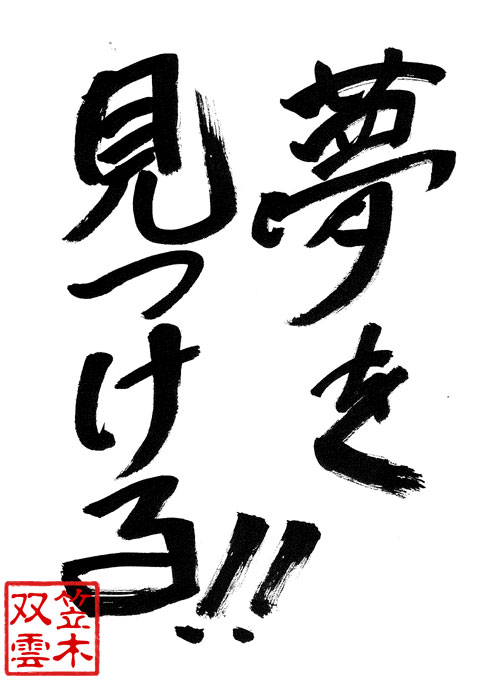 夢を
見つける!!
笠木
双雲